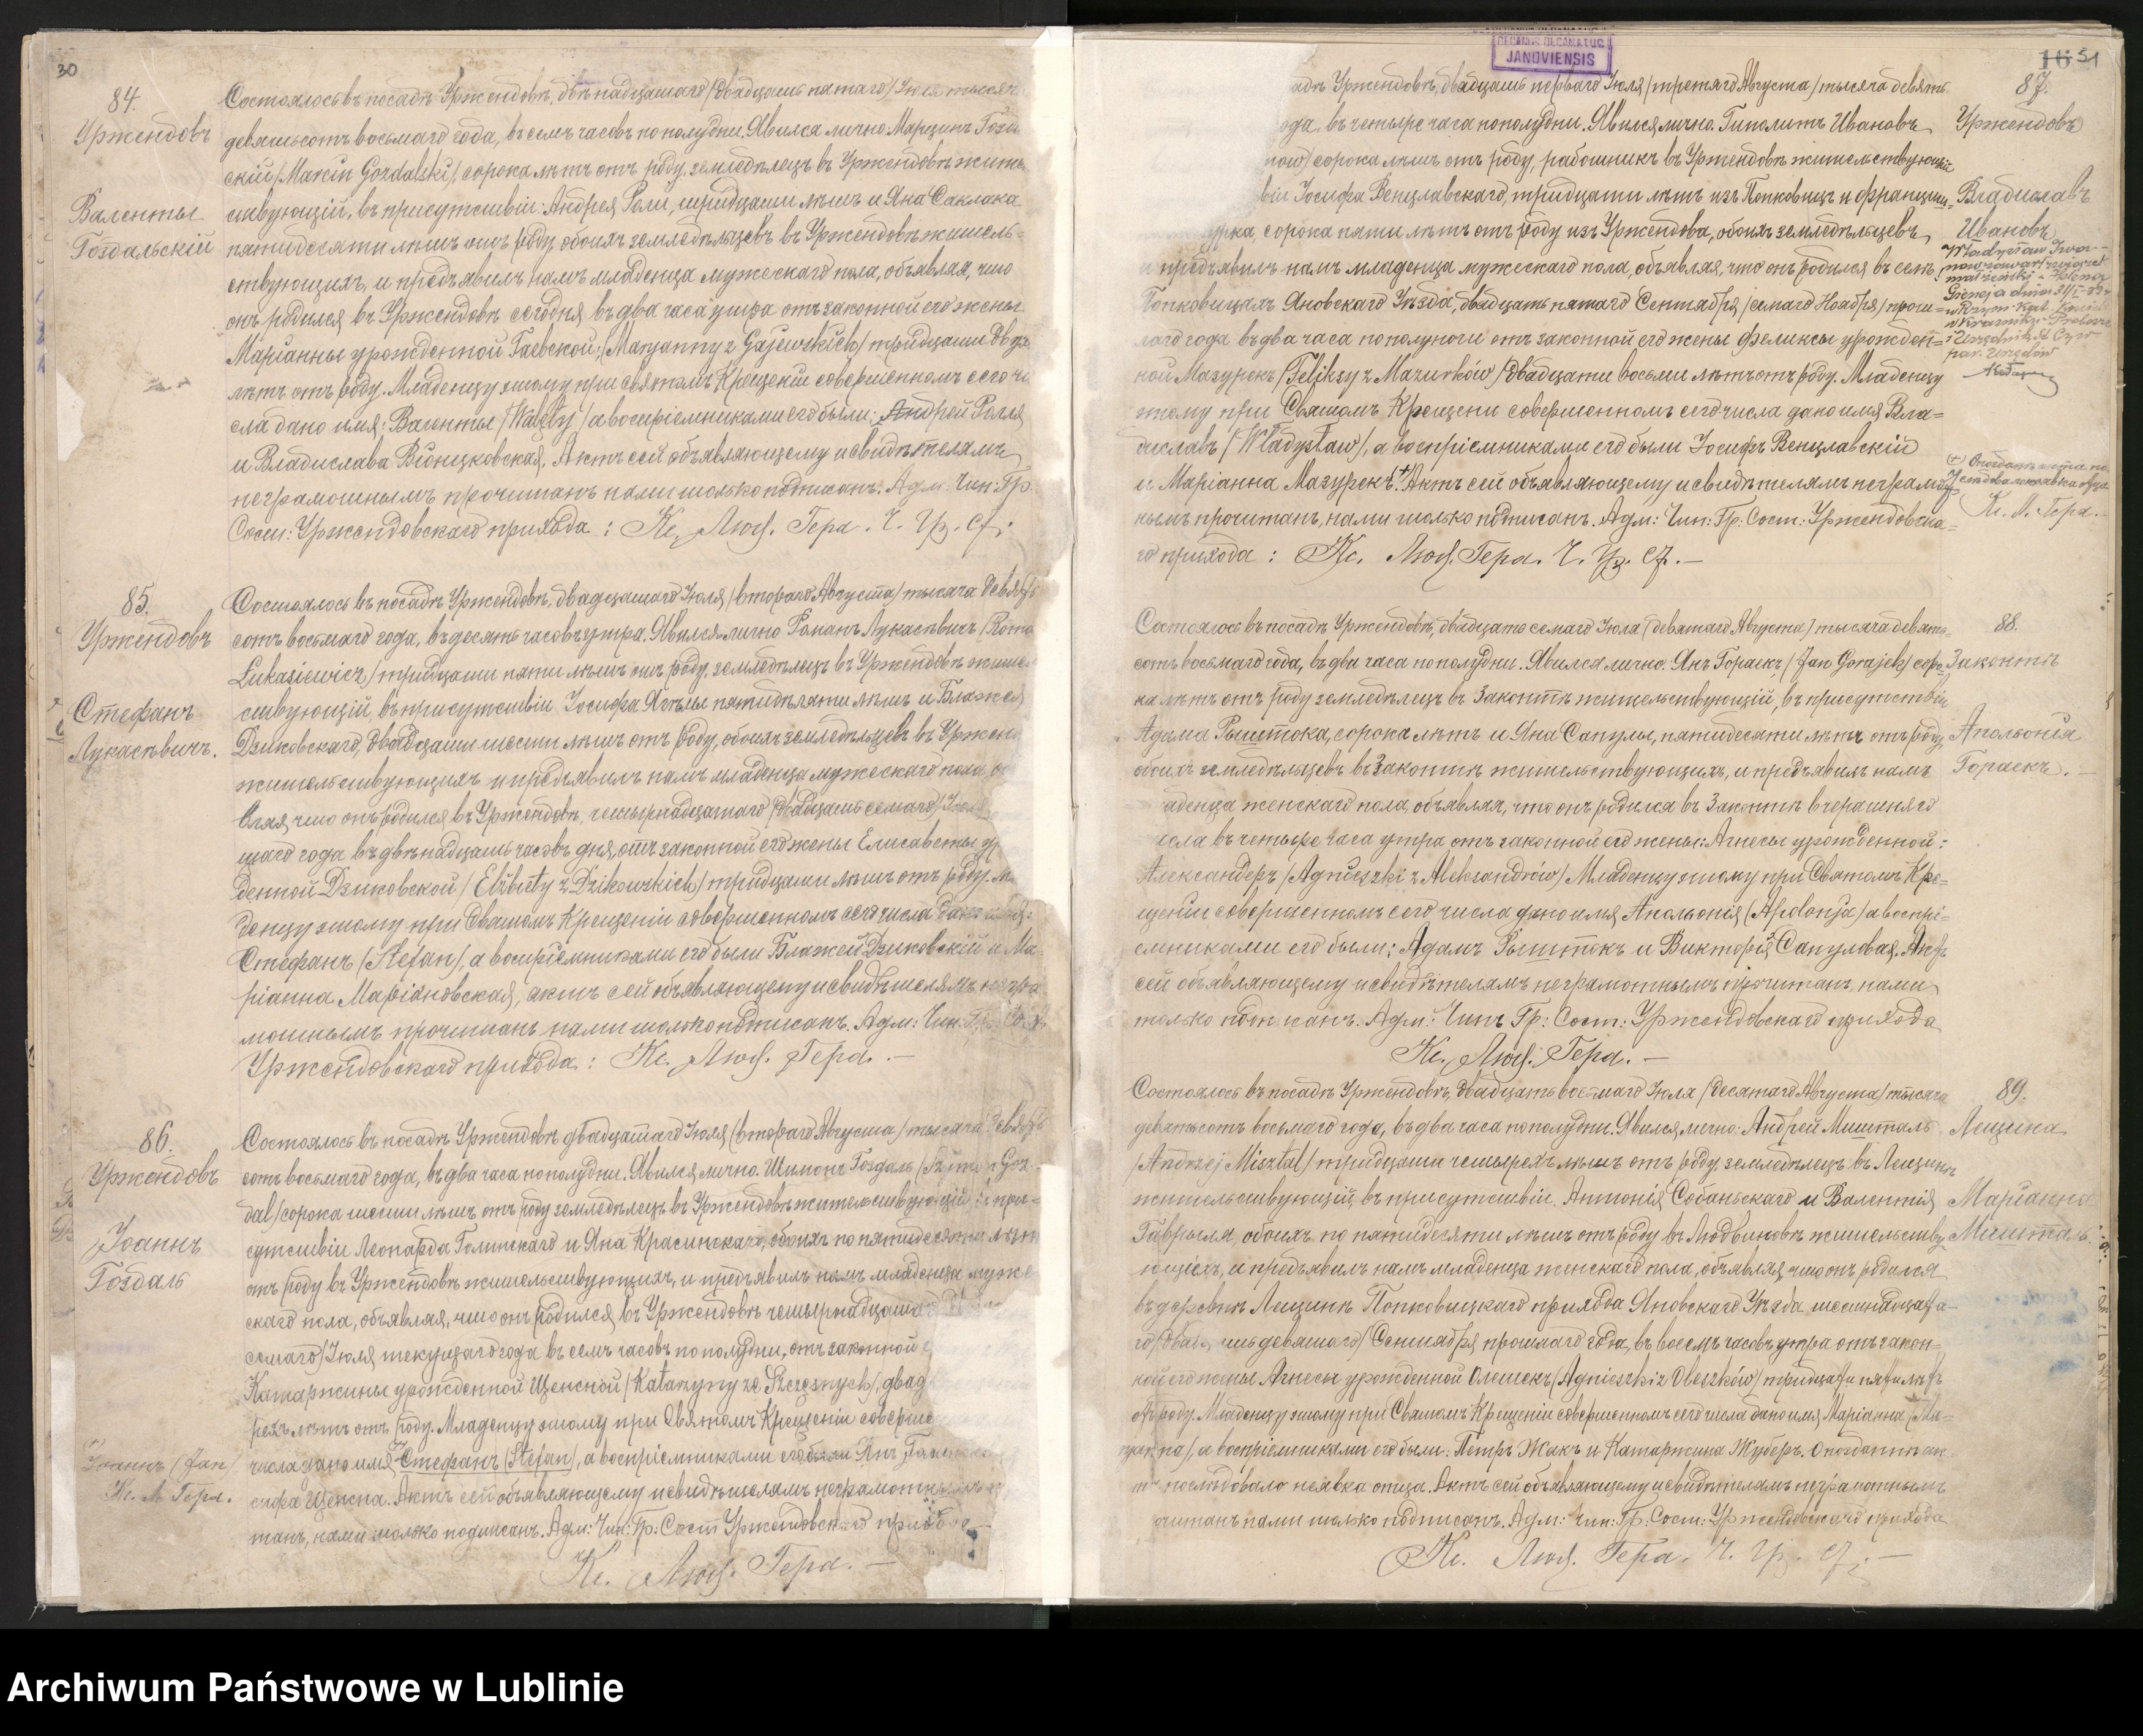 30
84.
Уржендовъ
Валенты
Гоздальскій
Состоялось въ посадѣ Уржендовѣ, двѣнадцатаго /двадцать пятаго/ Іюля тысяча
девятьсотъ восьмаго года, въ семь часовъ по полудни. Явился лично Марцинъ Гозд
скій /Marcin Gozdalski/, сорока лѣтъ отъ роду, земледѣлецъ въ Уржендовѣ житель
ствующій, въ присутствіи: Андрея Роли, тридцати лѣтъ и Яна Саклака
пятидесяти лѣтъ отъ роду обоихъ земледѣльцевъ въ Уржендовѣ житель=
ствующихъ, и предъявилъ намъ младенца мужескаго пола, объявляя, что
онъ родился въ Уржендовѣ сегодня въ два часа утра отъ законной его жены
Маріанны урожденной Гаевской, /Maryanny z Gajewskich/ тридцати двухъ
лѣтъ отъ роду. Младенцу этому при святомъ Крещеніи совершенномъ сего чи
сла дано имя: Валенты /Walęty/ а воспріемниками его были: Андрей Роля
и Владислава Войцѣховская. Актъ сей объявляющему и свидѣтелямъ
неграмотнымъ прочитанъ нами только подписанъ. Адм. Чин. Гр.
Сост: Уржендовскаго прихода: Кс. Люд. Гера. Ч. Гр. С.
85.
Уржендовъ
Стефанъ
Лукасѣвичъ.
Состоялось въ посадѣ Уржендовѣ, двадцатаго Іюля /втораго Августа/ тысяча девять
сотъ восьмаго года, въ десять часовъ утра. Явился лично Романъ Лукасѣвичъ /Roma
Łukasiewicz/ тридцати пяти лѣтъ отъ роду, земледѣлецъ въ Уржендовѣ жител
ствующій, въ присутствіи Іосифа пятидесяти лѣтъ и Блажея
Дзиковскаго, двадцати шести лѣтъ отъ роду, обоихъ земледѣльцевъ въ Уржен
жительствующихъ и предъявилъ намъ младенца мужескаго пола об
вляя, что онъ родился въ Уржендовѣ, четырнадцатаго /двадцать седьмаго/ Іюля
щаго года въ двѣнадцать часовъ дня, отъ законной его жены Елисаветы ур
денной Дзиковской /Elżbiety z Dzikowskich/ тридцати лѣтъ отъ роду. Мла
денцу этому при Святомъ Крещеніи совершенномъ сего числа дано имя:
Стефанъ /Stefan/, а воспріемниками его были Блажей Дзиковскій и Ма
ріанна Маріановская, актъ сей объявляющему и свидѣтелямъ негра
мотнымъ прочитанъ нами только подписанъ. Адм: Чин: Гр: Сост
Уржендовскаго прихода: Кс. Люд. Гера. –
86.
Уржендовъ
Іоаннъ
Гоздаль
Состоялось въ посадѣ Уржендовѣ двадцатаго Іюля (втораго Августа) тысяча девять
сотъ восьмаго года, въ два часа по полудни. Явился лично. Шимонъ Гоздаль /Szymon Goz-
dal/ сорока шести лѣтъ отъ роду земледѣлецъ въ Уржендовѣ жительствующій въ при-
сутствіи Леонарда Голинскаго и Яна Красинскаго, обоихъ по пятидесяти лѣтъ
отъ роду въ Уржендовѣ жительствующихъ, и предъявилъ намъ младенца муже
скаго пола, объявляя, что онъ родился въ Уржендовѣ четырнадцатаго
седьмаго/ Іюля текущаго года въ семь часовъ по полудни, отъ законной е
Катаржины урожденной Щенсной /Katarzyny ze Szczesnych/, двад
рехъ лѣтъ отъ роду. Младенцу этому при Святомъ Крещеніи соверше
числа дано имя (+) Стефанъ (Stefan), а воспріемниками его были Янъ
сифа Щенсна. Актъ сей объявляющему и свидѣтелямъ неграмотнымъ
танъ, нами только подписанъ. Адм: Чин: Гр: Сост Уржендовскаго прихода
Кс. Люд. Гера. –
(+)
Іоаннъ (Jan)
Кс. Л. Гера.
DECANATUS
JANOVIENSIS
51
87.
Уржендовъ
Владиславъ
Ивановъ
адѣ Уржендовѣ, двадцать перваго Іюля /третяго Августа/ тысяча девять
ода, въ четыре часа пополудни. Явился лично. Гиполитъ Ивановъ
now/ сорока лѣтъ отъ роду, работникъ въ Уржендовѣ жительствующій
віи Іосифа Венцлавскаго, тридцати лѣтъ изъ Попковицъ и Францишка
урка, сорока пяти лѣтъ отъ роду изъ Уржендова, обоихъ земледѣльцевъ
и предъявилъ намъ младенца мужескаго пола, объявляя, что онъ родился въ селѣ
Попковицахъ Яновскаго Уѣзда, двадцать пятаго Сентября /седьмаго Ноября/ прош=
лаго года въ два часа пополуночи отъ законной его жены Феликсы урожден=
ной Мазурекъ /Feliksy z Mazurków/ двадцати восьми лѣтъ отъ роду. Младенцу
этому при Святомъ Крещеніи совершенномъ сего числа дано имя Вла=
диславъ /Władysław/, а воспріемниками его были Іосифъ Венцлавскій
и Маріанна Мазурекъ (+). Актъ сей объявляющему и свидѣтелямъ неграмот=
нымъ прочитанъ, нами только подписанъ. Адм: Чин: Гр: Сост: Уржендовска=
го прихода: Кс. Люд. Гера. Ч. Гр. С. –
Władysław Iwa-
now zawarł związek
małżeński z Heleną
par. Urzędów
Кс. Л. Гера. –
88.
Законтѣ
Аполонія
Гораекъ. –
Состоялось въ посадѣ Уржендовѣ, двадцать седьмаго Іюля (девятаго Августа) тысяча девять=
сотъ восьмаго года, въ два часа по полудни. Явился лично: Янъ Гораекъ, /Jan Gorajek/ соро-
ка лѣтъ отъ роду земледѣлецъ въ Законтѣ жительствующій, въ присутствіи
Адама Рыштока, сорока лѣтъ и Яна Сапулы, пятидесяти лѣтъ отъ роду
обоихъ земледѣльцевъ въ Законтѣ жительствующихъ, и предъявилъ намъ
аденца женскаго пола, объявляя, что онъ родился въ Законтѣ вчерашняго
исла въ четыре часа утра отъ законной его жены: Агнесы урожденной:
Александеръ /Agnieszki z Aleksandrów/ Младенцу этому при Святомъ Кре=
щеніи совершенномъ сего числа дано имя Аполонія (Apolonja) а воспрі=
емниками его были: Адамъ Рыштокъ и Викторія Сапуловая. Актъ
сей объявляющему и свидѣтелямъ неграмотнымъ прочитанъ, нами
только подписанъ. Адм: Чинъ Гр: Сост: Уржендовскаго прихода
Кс. Люд. Гера. –
89.
Лещина
Маріанна
Мишталь
Состоялось въ посадѣ Уржендовѣ, двадцать восьмаго Іюля (десятаго Августа) тысяча
девятьсотъ восьмаго года, въ два часа пополудни. Явился лично: Андрей Мишталь
/Andrzej Misztal/ тридцати четырехъ лѣтъ отъ роду, земледѣлецъ въ Лещинѣ
жительствующій, въ присутствіи. Антонія Собаньскаго и Валентія
Гаврыля, обоихъ по пятидесяти лѣтъ отъ роду въ Людвиновѣ жительству
ющихъ, и предъявилъ намъ младенца женскаго пола, объявляя, что онъ родился
въ деревнѣ Лещинѣ Попковицкаго прихода Яновскаго Уѣзда, шестнадцата-
го /двадцать девятаго/ Сентября прошлаго года, въ восемъ часовъ утра отъ закон-
ной его жены Агнесы урожденной Олешекъ /Agnieszki z Oleszków/ тридцати пяти лѣтъ
отъ роду. Младенцу этому при Святомъ Крещеніи совершенномъ сего числа дано имя Маріанна /Ma-
, а воспріемниками его были: Петръ Жакъ и Катаржина Жуберъ. Опозданіе ак
та послѣдовало неявка отца. Актъ сей объявляющему и свидѣтелямъ неграмотнымъ
очитанъ нами только подписанъ. Адм: Чин: Гр: Сост: Уржендовскаго прихода
Кс. Люд. Гера. Ч. Гр. С. –
Archiwum Państwowe w Lublinie